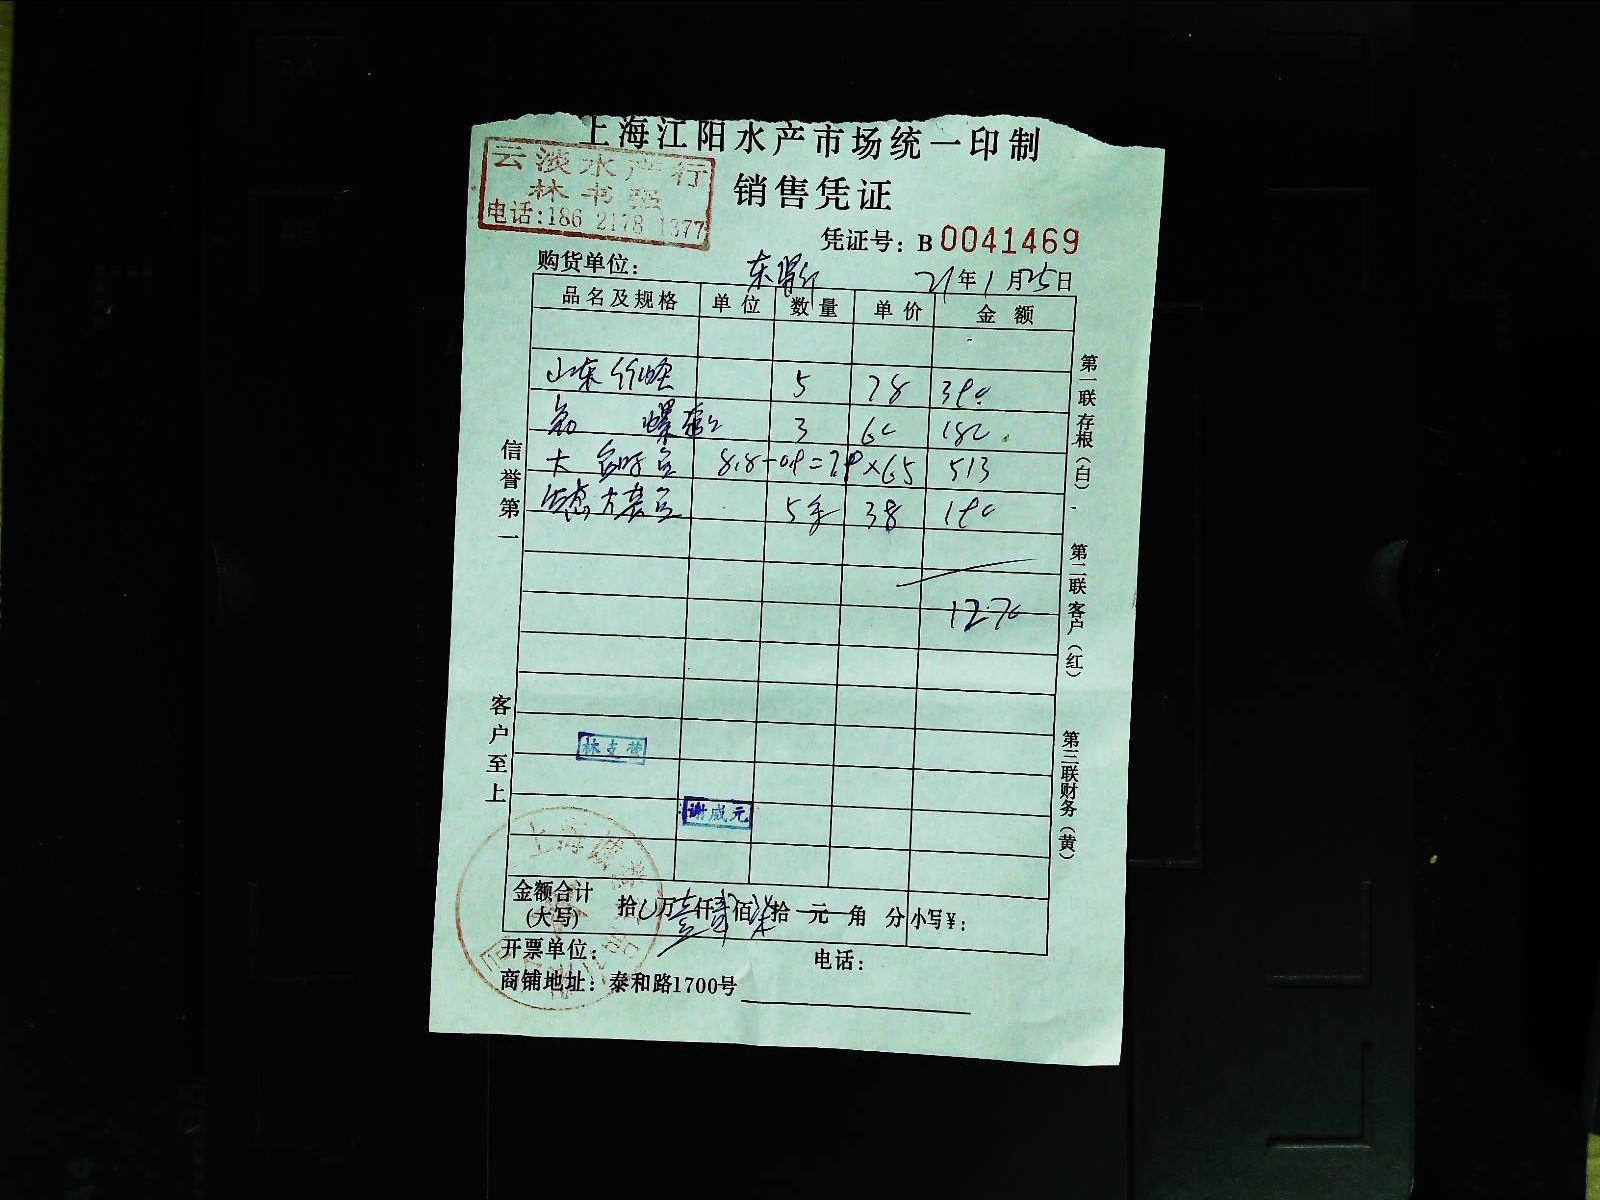 上海江阳水产市场统一印制
云淡水产行
林书强
电话:186 2178 1377
销售凭证
凭证号: B 0041469
购货单位:
21年1月25日
品名及规格 单位 数量 单价 金额
山东 5 78 390
螺 3 60 180
大 8.8-0.9=7.9×65 513
5 38 190
1270
信誉第一
客户至上
第一联存根(白)
第二联客户(红)
第三联财务(黄)
谢威元
金额合计(大写) 拾 万壹仟贰佰柒拾 元 角 分 小写¥:
开票单位: 电话:
商铺地址: 泰和路1700号